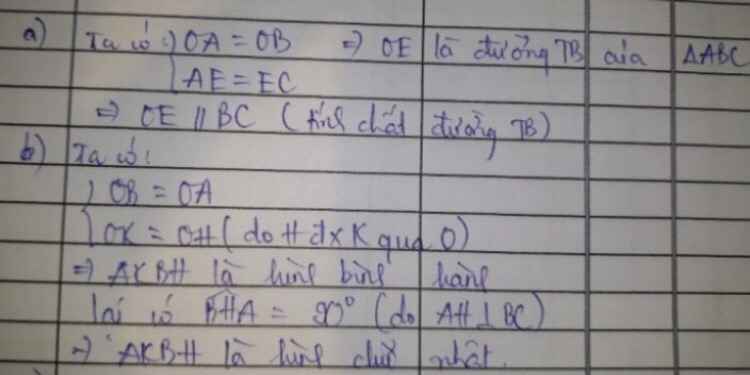 a) Ta có: } OA = OB ⇒ OE là đường TB của ΔABC
{ AE = EC
⇒ OE // BC (tính chất đường TB)
b) Ta có:
} OB = OA
{ OK = OH (do H đx K qua O)
⇒ AKBH là hình bình hành
lại có BHA = 90° (do AH ⊥ BC)
⇒ AKBH là hình chữ nhật.